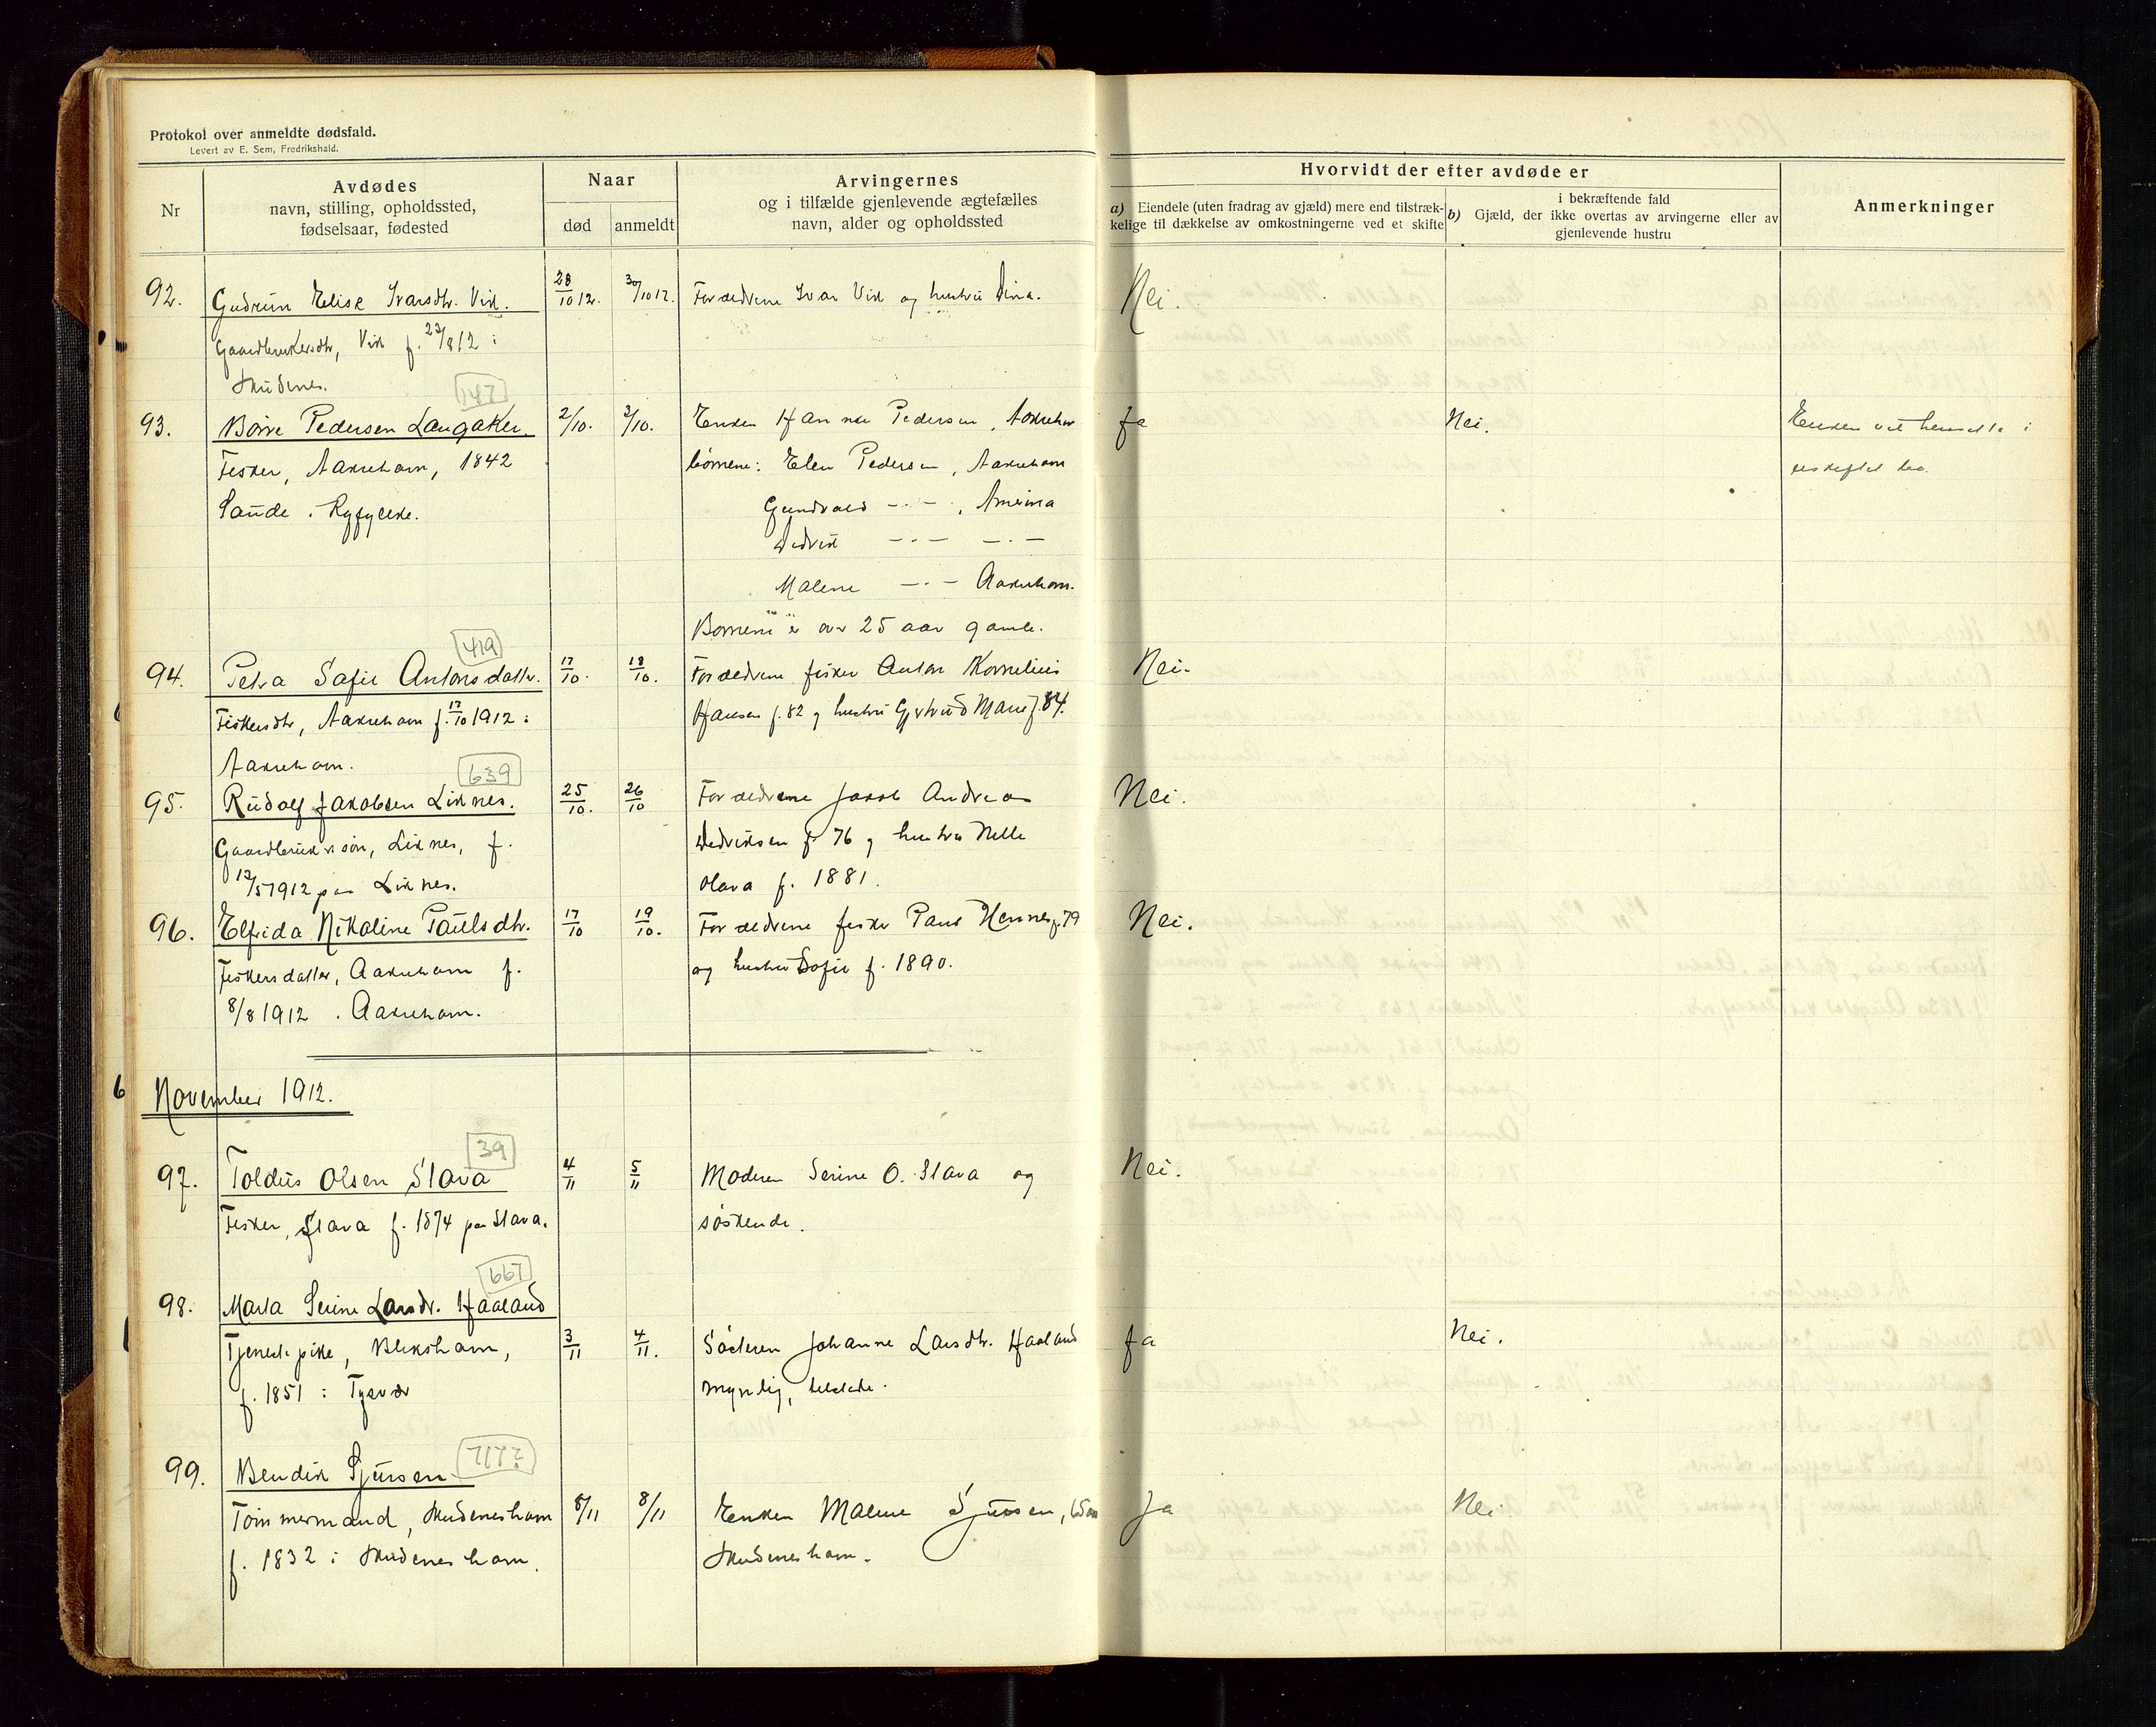 Protokol over anmeldte dødsfald.
Levert av E. Sem, Fredrikshald.
Nr
Avdødes
navn, stilling, opholdssted,
fødselsaar, fødested
Naar
død
anmeldt
Arvingernes
og i tilfælde gjenlevende ægtefælles
navn, alder og opholdssted
Hvorvidt der efter avdøde er
a) Eiendele (uten fradrag av gjæld) mere end tilstræk-
kelige til dækkelse av omkostningerne ved et skifte
i bekræftende fald
b) Gjæld, der ikke overtas av arvingerne eller av
gjenlevende hustru
Anmerkninger
92. Gudrun Elise Ivarsdtr. Vik. 28/10 12. 30/10 12. Forældrene Ivar Vik og hustru Dina. Nei.
Gaardbrukersdtr, Vik f. 23/8 12 i
Skudenes.
147
93. Børre Pedersen Langaker. 2/10. 3/10. Enken Hanna Pedersen, Aakrehavn Ja Nei. Enken vil hensitte i
Fisker, Aakrehavn, 1842 børnene: Elen Pedersen, Aakrehavn uskiftet bo.
Saude i Ryfylke. Gundvald -"-, Amerika
Didrik -"- -"-
Malene -"- Aakrehavn.
Børnene er over 25 aar gamle.
419
94. Petra Sofie Antonsdatter. 17/10. 18/10. Forældrene fisker Anton Kornelius Nei.
Fiskersdtr, Aakrehavn f. 17/10 1912 i Hansen f. 82 og hustru Gjertrud Marie f. 84.
Aakrehavn.
639
95. Rudolf Jakobsen Liknes. 25/10. 26/10 Forældrene Jakob Andreas Nei.
Gaardbrukersøn, Liknes, f. Didriksen f. 76 og hustru Nelle
12/5 1912 paa Liknes. Olava f. 1881.
96. Elfrida Nikoline Paulsdtr. 17/10 19/10. Forældrene fisker Paul Hennes f. 79 Nei.
Fiskersdatter, Aakrehavn f. og hustru Sofie f. 1890.
8/8 1912 i Aakrehavn.
6
November 1912.
39
97. Toldus Olsen Stava 4/11 5/11 Moderen Serine O. Stava og Nei.
Fisker, Stava f. 1874 paa Stava. søskende.
667
98. Marta Serine Larsdr. Haaland
Tjenestepike, Blikshavn, 3/11 4/11. Søsteren Johanne Larsdtr. Haaland Ja Nei.
f. 1851 i Tysvær myndig,
717?
99. Bendik Sjursen
Tømmermand, Skudeneshavn 5/11 8/11 Enken Malene Sjursen, 65 aar Ja Nei.
f. 1832 i Skudeneshavn. Skudeneshavn.